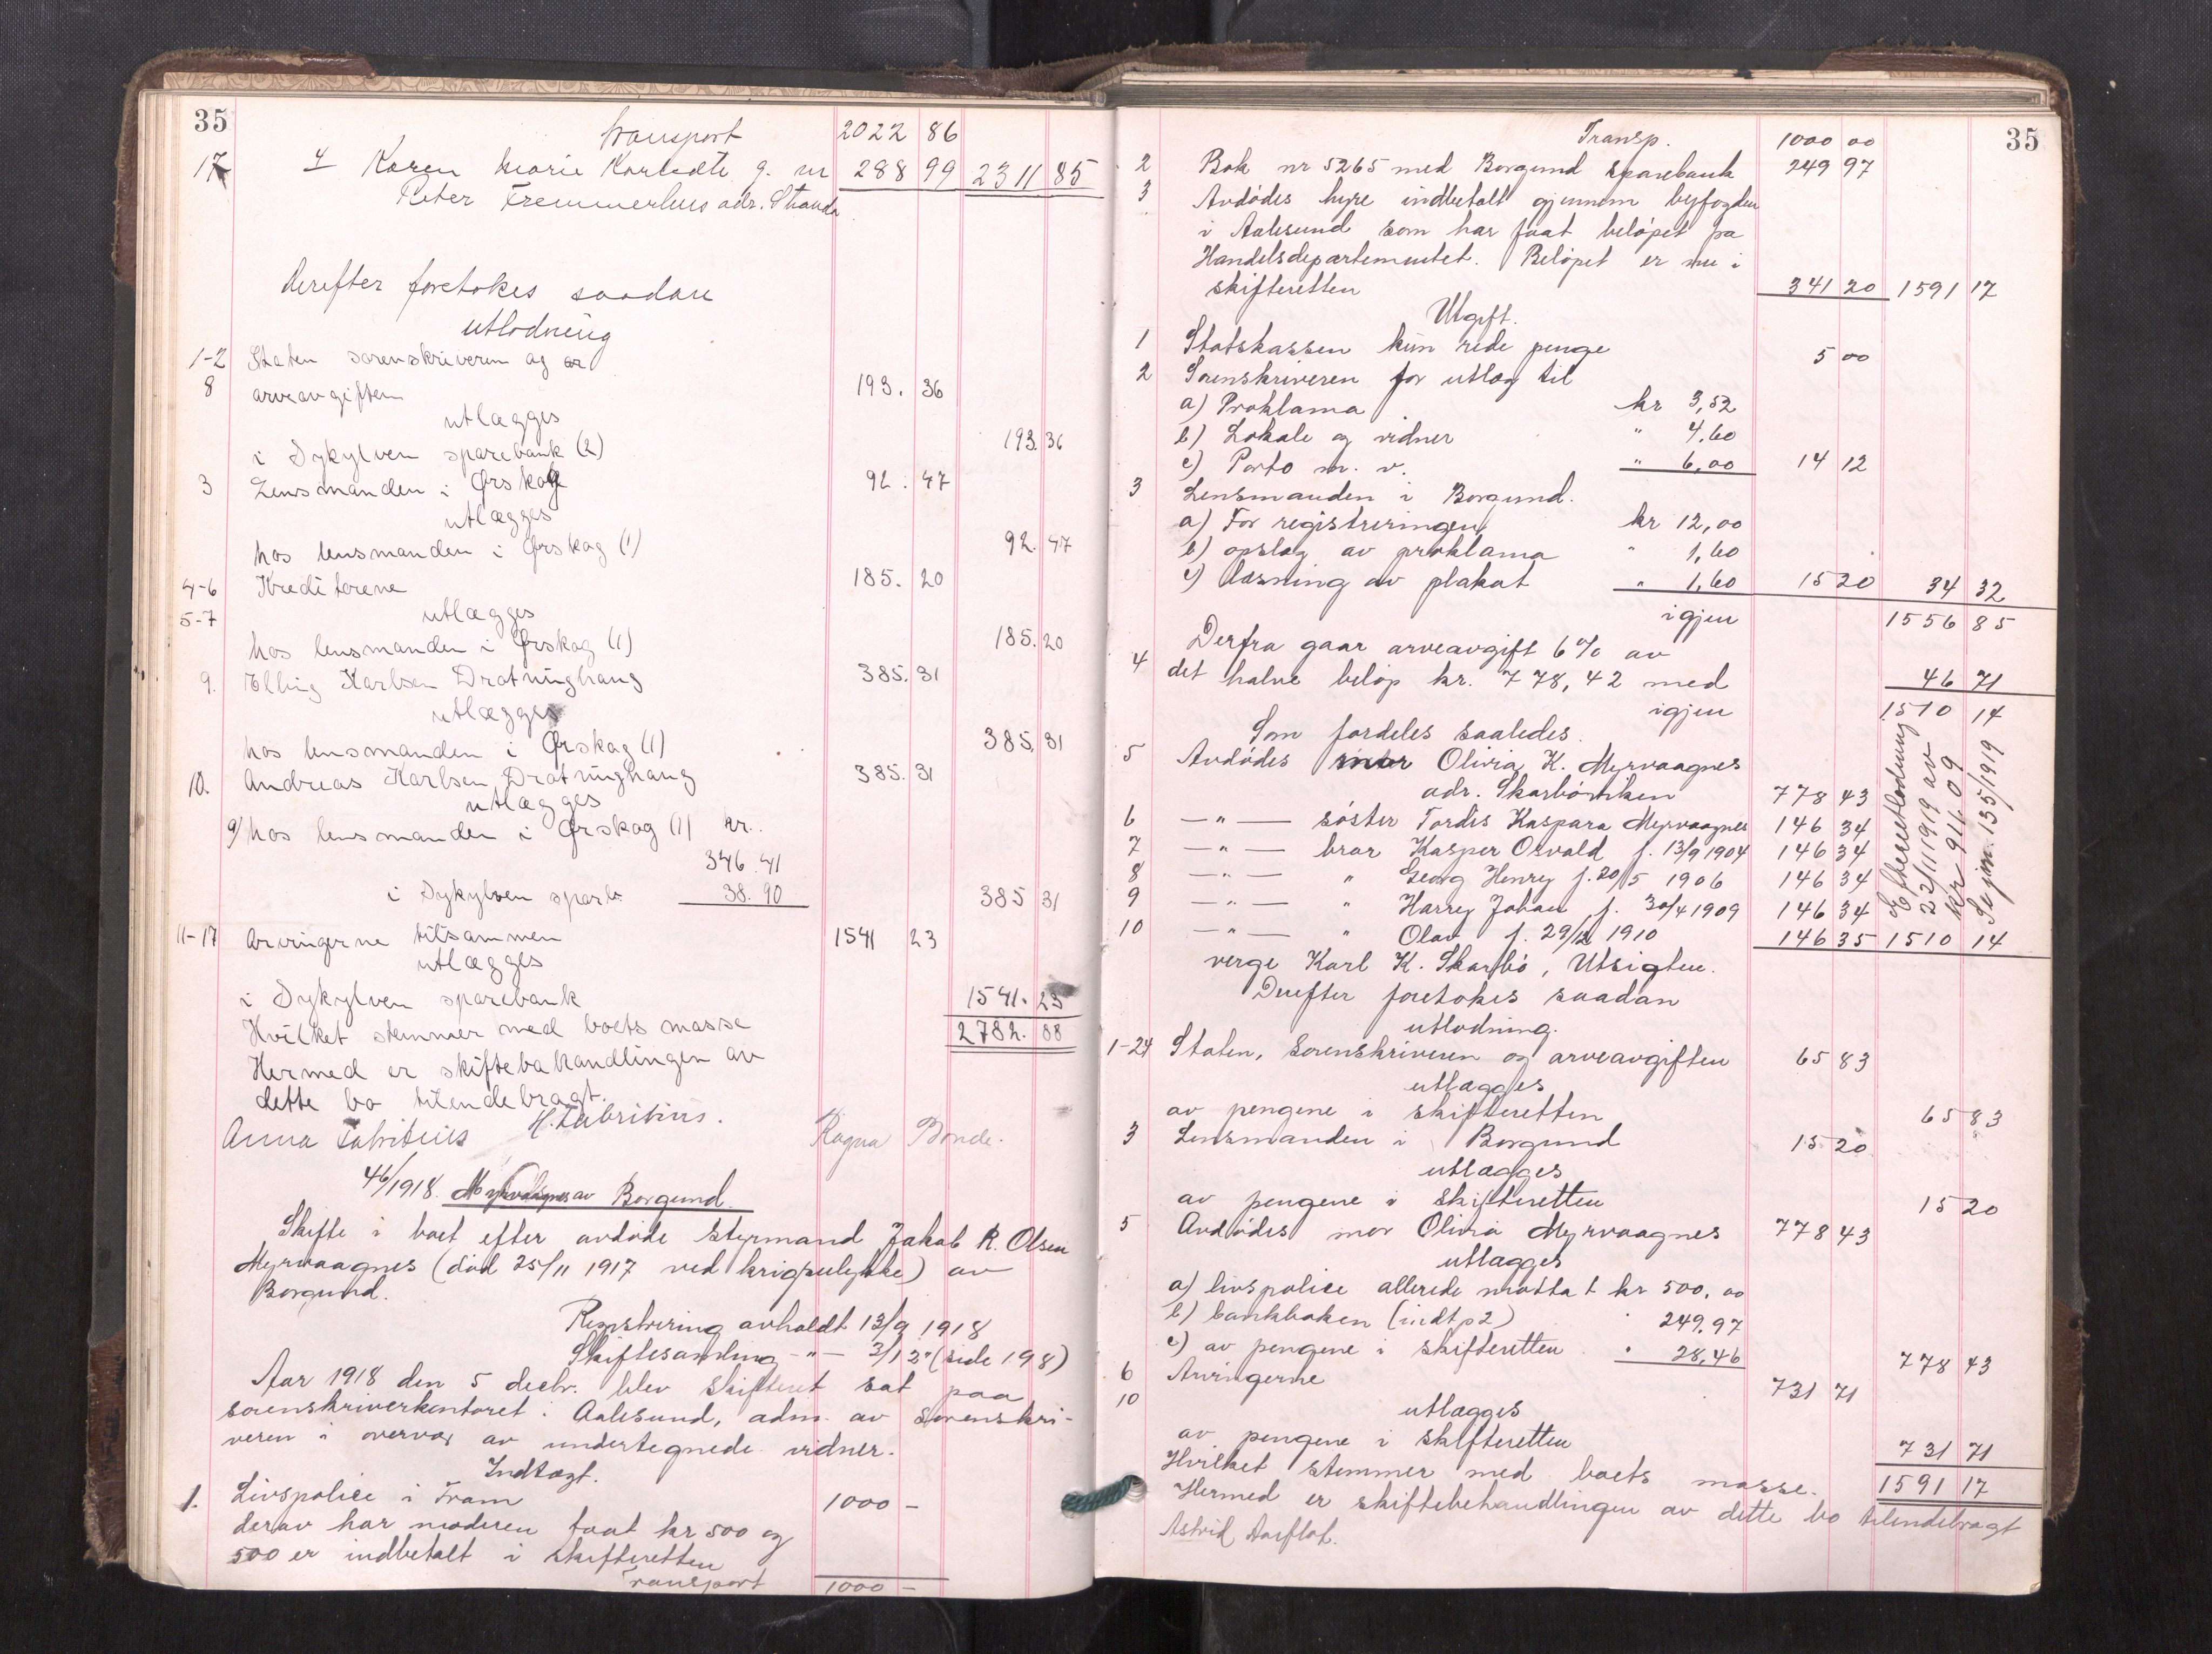 35
transport 2022 86
17 4 Karen Marie Karlsdtr g. m 288 99 2311 85
Peter Fremmerhus adr. Stranda
Derefter foretokes saadan
utlodning
1-2 Staten sorenskriveren og
8 arveavgiften 193. 36
utlægges
i Sykylven sparebank (2) 193. 36
3 Lensmanden i Ørskog 92. 47
utlægges
hos lensmanden i Ørskog (1) 92. 47
4-6 Kreditorene 185. 20
5-7 utlægges
hos lensmanden i Ørskog (1) 185. 20
9. Elling Karlsen Drotninghaug 385. 31
utlægges
hos lensmanden i Ørskog (1) 385. 31
10. Andreas Karlsen Drotninghaug 385. 31
utlægges
9) hos lensmanden i Ørskog (1) kr..
346. 41
i Sykylven sparb. 38. 90 385 31
11-17 Arvingerne tilsammen 1541 23
utlægges
i Sykylven sparebank 1541. 23
Hvilket stemmer med boets masse 2782. 88
Hermed er skiftebehandlingen av
dette bo tilendebragt.
Anna Fabritius H. Fabritius. Ragna Bonde.
46/1918. Myrvaagnes av Borgund.
Skifte i boet efter avdøde styrmand Jakob R. Olsen
Myrvaagnes (død 25/11 1917 ved krigsulykke) av
Borgund.
Registrering avholdt 13/9 1918
Skiftesamling -"- 3/12" (side 198)
Aar 1918 den 5 decbr. blev skifteret sat paa
sorenskriverkontoret i Aalesund, adm. av sorenskri-
veren i overvær av undertegnede vidner.
Indtægt.
1. Livspolice i Fram 1000 -
derav har moderen faat kr 500 og
500 er indbetalt i skifteretten
Transport 1000 -
35
Transp. 1000 00
2 Bok nr 5265 med Borgund sparebank 249 97
3 Avdødes hyre indbetalt gjennem byfogden
i Aalesund som har faat beløpet fra
Handelsdepartementet. Beløpet er nu i
skifteretten 341 20 1591 17
Utgift.
1 Statskassen kun rede penge 5 00
2 Sorenskriveren for utlæg til
a) Proklama kr 3,52
b) Lokale og vidner " 4,60
c) Porto m. v. " 6,00 14 12
3 Lensmanden i Borgund.
a) For registreringen kr 12,00
b) opslag av proklama " 1,60
c) læsning av plakat " 1,60 15 20 34 32
igjen 1556 85
Derfra gaar arveavgift 6% av
4 det halve beløp kr. 778,42 med 46 71
igjen 1510 14
Som fordeles saaledes.
5 Avdødes mor Olivia K. Myrvaagnes
adr. Skarbøviken 778 43
6 -"- søster Tordis Kaspara Myrvaagnes 146 34
7 -"- bror Kasper Osvald f. 13/9 1904 146 34
8 -"- " Georg Henry f. 20/5 1906 146 34
9 -"- " Harry Johan f. 30/4 1909 146 34
10 -"- " Olav f. 29/12 1910 146 35 1510 14
Efterutlodning
22/11 1919 av
kr 916 09
Se jrn. 135/1919
verge Karl K. Skarbø, Utsigten.
Derefter foretokes saadan
utlodning.
1-24 Staten, Sorenskriveren og arveavgiften 65 83
utlægges
av pengene i skifteretten 65 83
3 Lensmanden i Borgund 15 20
utlægges
av pengene i skifteretten 15 20
5 Avdødes mor Olivia Myrvaagnes 778 43
utlægges
a) livspolice allerede mottat kr 500,00
b) bankboken (indt p 2) " 249,97
c) av pengene i skifteretten " 28,46 778 43
6 Arvingerne 731 71
10 utlægges
av pengene i skifteretten 731 71
Hvilket stemmer med boets masse. 1591 17
Hermed er skiftebehandlingen av dette bo tilendebragt
Astrid Aarflot.